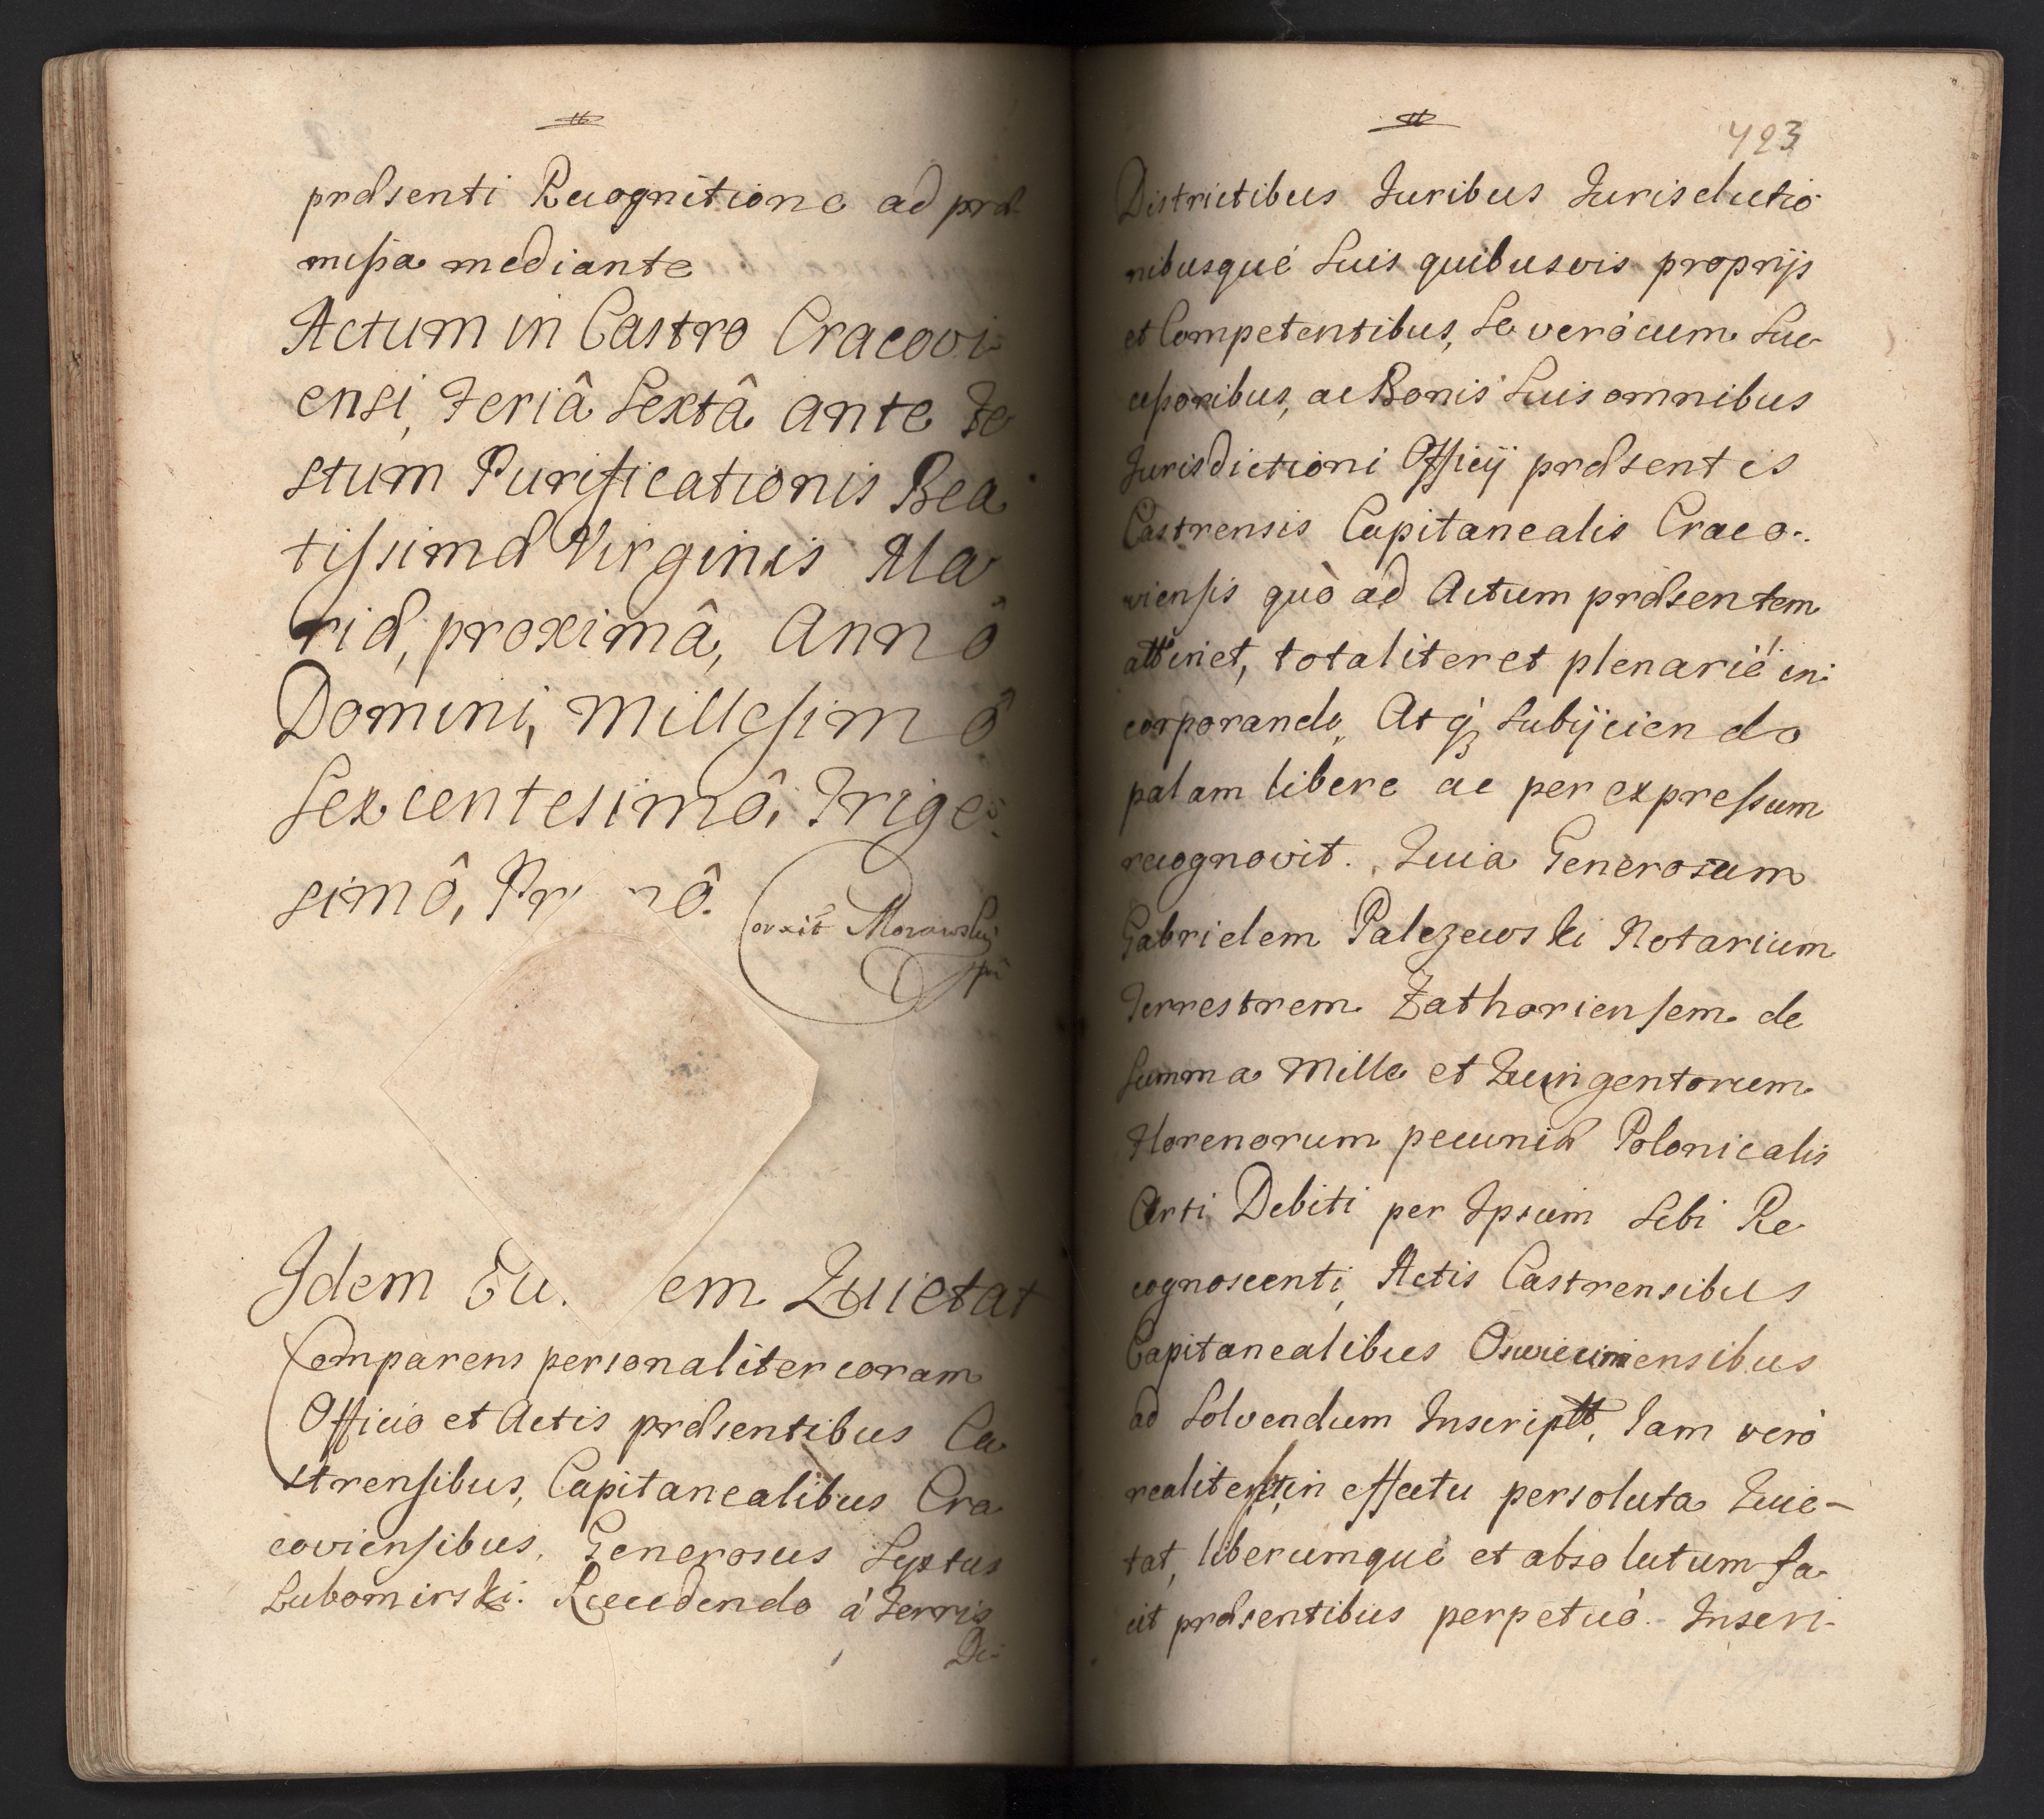 præsenti Recognitione ad præ-
missa mediante
Actum in Castro Cracovi-
ensi, Feriâ Sextâ ante Fe
stum Purificationis Bea-
tissimæ Virginis Ma
riæ, proximâ, Annô
Domini, Millesimô
Sexcentesimô, Trige-
simô, Pr mô.
Correxit Morawsky
mp
Idem Eu. em Quietat
Comparens personaliter coram
Officio et Actis præsentibus Ca
strensibus, Capitanealibus Cra
coviensibus, Generosus Syxtus
Lubomirski. Recedendo à Terris
Di-
423
Districtibus Iuribus Iurisdictio-
nibusquè suis quibusvis proprijs
et Competentibus, se verò cum Suc-
cessoribus, ac Bonis suis omnibus
Iurisdictioni Officij præsentis
Castrensis Capitanealis Craco-
viensis quò ad Actum præsentem
attinet, totaliter et plenariè in-
corporando, Atq3 subijciendo
palam libere ac per expressum
recognovit. Quia Generosum
Gabrielem Palczewski Notarium
Terrestrem Zathoriensem de
summa Mille et Quingentorum
Florenorum pecuniæ Polonicalis
Certi Debiti per Ipsum Sibi Re
cognoscenti, Actis Castrensibus
Capitanealibus Oswiecimensibus
ad solvendum Inscriptt, Iam verò
realiter in effectu persoluta Quie-
tat, liberumquè et absolutum fa-
cit præsentibus perpetuò. Inscri-